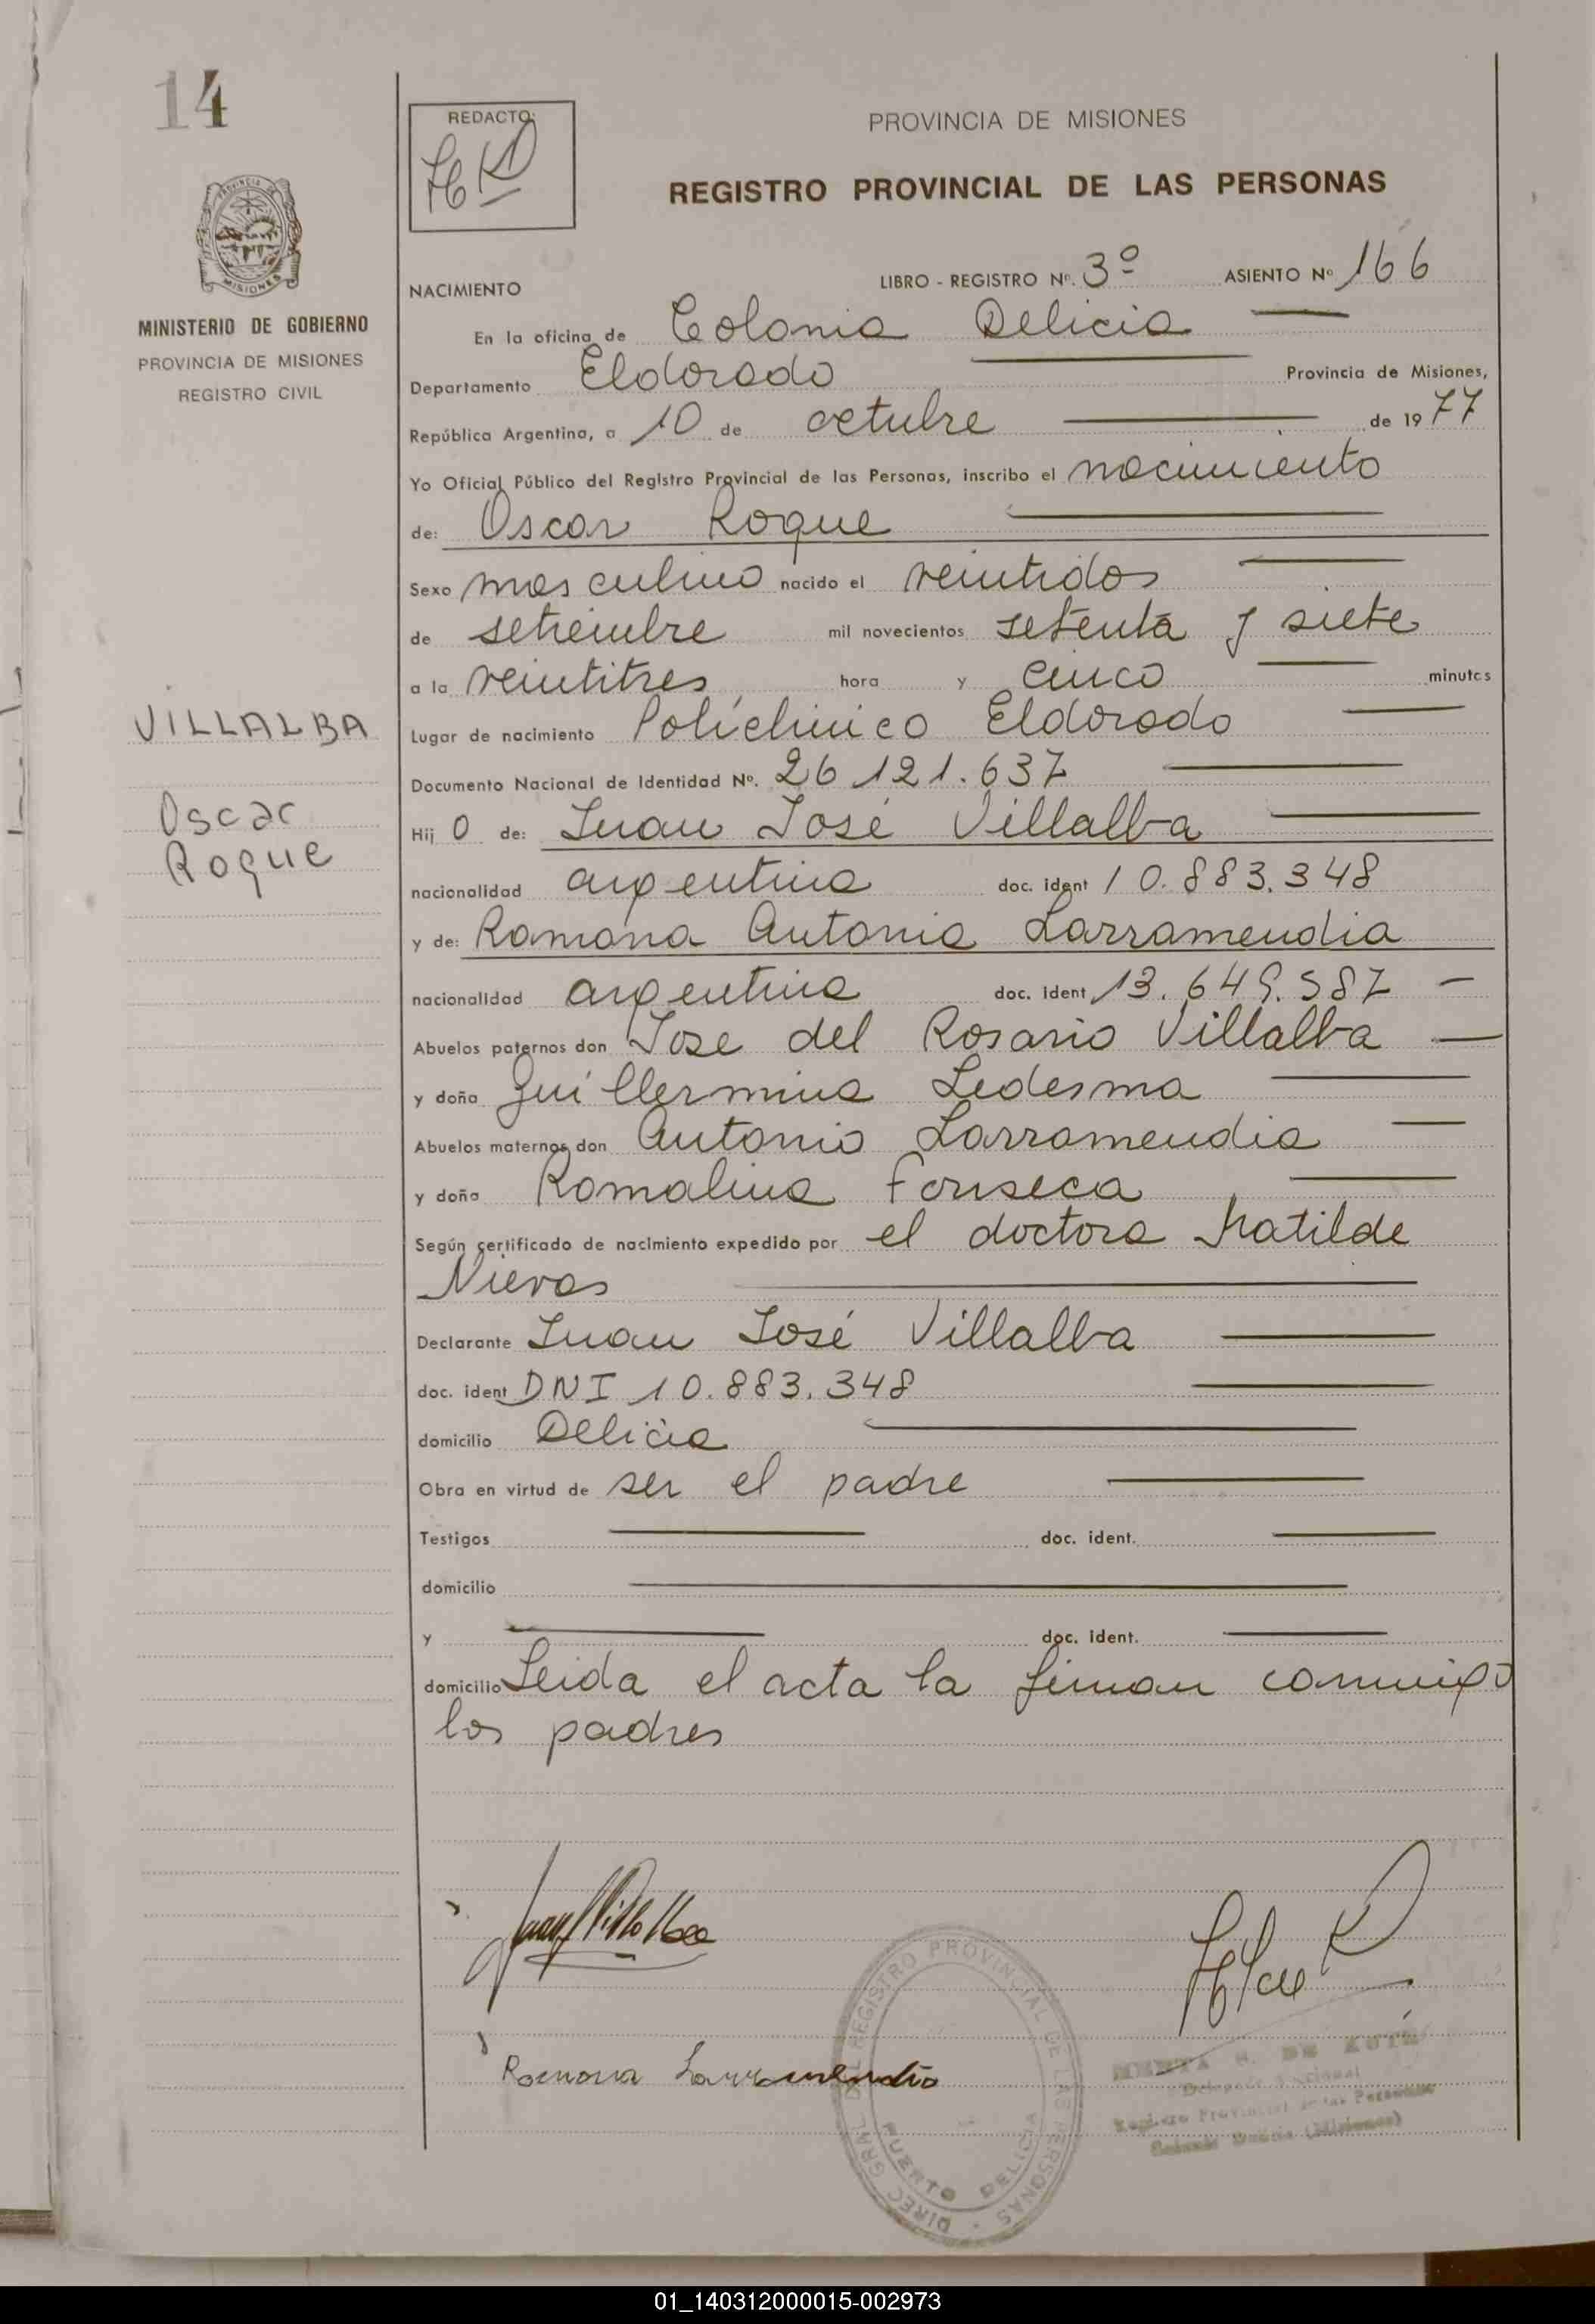 14
REDACTO:
PROVINCIA DE MISIONES
REGISTRO PROVINCIAL DE LAS PERSONAS
PROVINCIA DE
MISIONES
MINISTERIO DE GOBIERNO
PROVINCIA DE MISIONES
REGISTRO CIVIL
VILLALBA
Oscar
Roque
NACIMIENTO LIBRO - REGISTRO Nº. 3º ASIENTO Nº 166
En la oficina de Colonia Delicia
Departamento Eldorado Provincia de Misiones,
República Argentina, a 10 de octubre de 1977
Yo Oficial Público del Registro Provincial de las Personas, inscribo el nacimiento
de: Oscar Roque
Sexo masculino nacido el veintidos
de setiembre mil novecientos setenta y siete
a la veintitres hora y cinco minutos
Lugar de nacimiento Policlinico Eldorado
Documento Nacional de Identidad Nº. 26 121.637
Hij o de: Juan José Villalba
nacionalidad argentina doc. ident 10.883.348
y de: Ramona Antonia Larramendia
nacionalidad argentina doc. ident 13.649.587
Abuelos paternos don Jose del Rosario Villalba
y doña Guillermina Ledesma
Abuelos maternos don Antonio Larramendia
y doña Romalina Fonseca
Según certificado de nacimiento expedido por el doctora Matilde
Nievas
Declarante Juan José Villalba
doc. ident DNI 10.883.348
domicilio Delicia
Obra en virtud de ser el padre
Testigos doc. ident.
domicilio
y doc. ident.
domicilio Leida el acta la firman conmigo
los padres
Juan J Villalba
Ramona Larramendia
DIREC GRAL DEL REGISTRO PROVINCIAL DE LAS PERSONAS
PUERTO DELICIA
DE
Registro Provincial de las Personas
(Misiones)
01_140312000015-002973